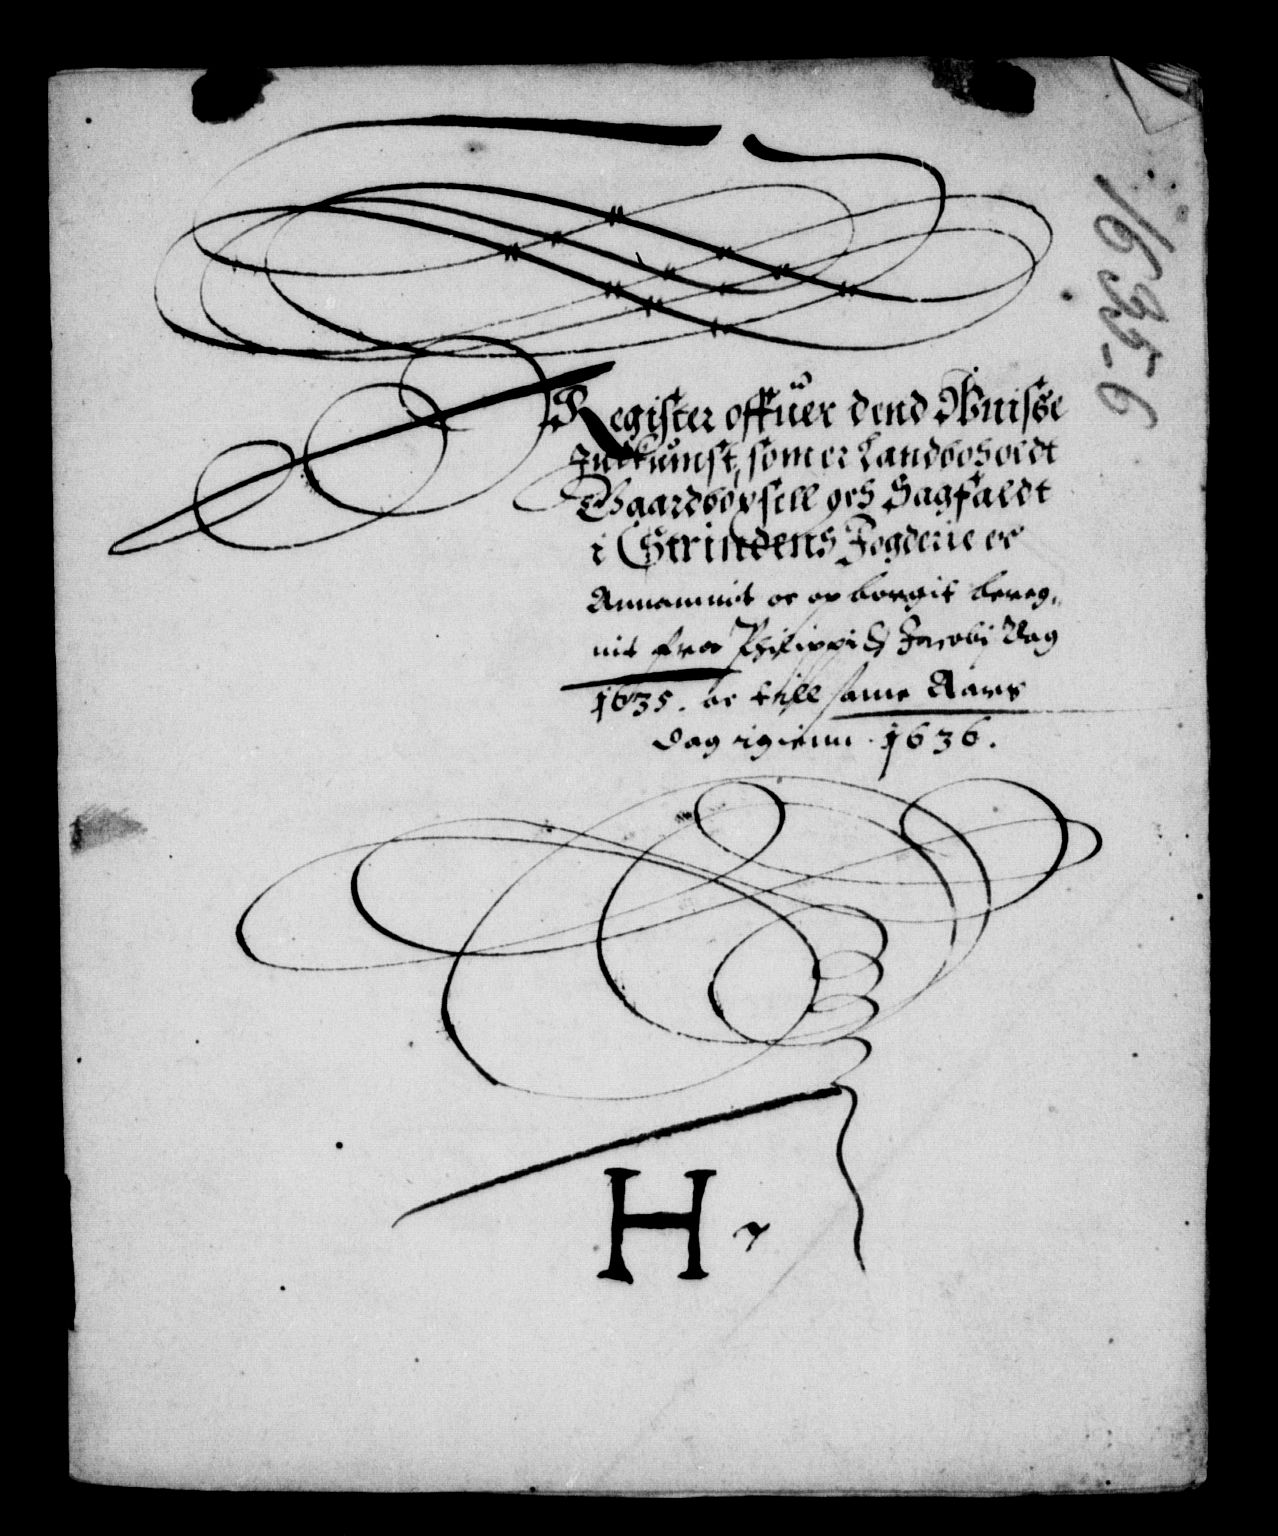 Register offuer dend Wuisse
Indkumst, som er Landboholdt
Gaardbøxsell och Sagfaldt
i Strindens Fogderie er
Annammit oc opborgit bereg,
nit fra Philippi & Jacobj Dag
1635. oc till same Aars
dag igienn. 1636.
H
1635-6